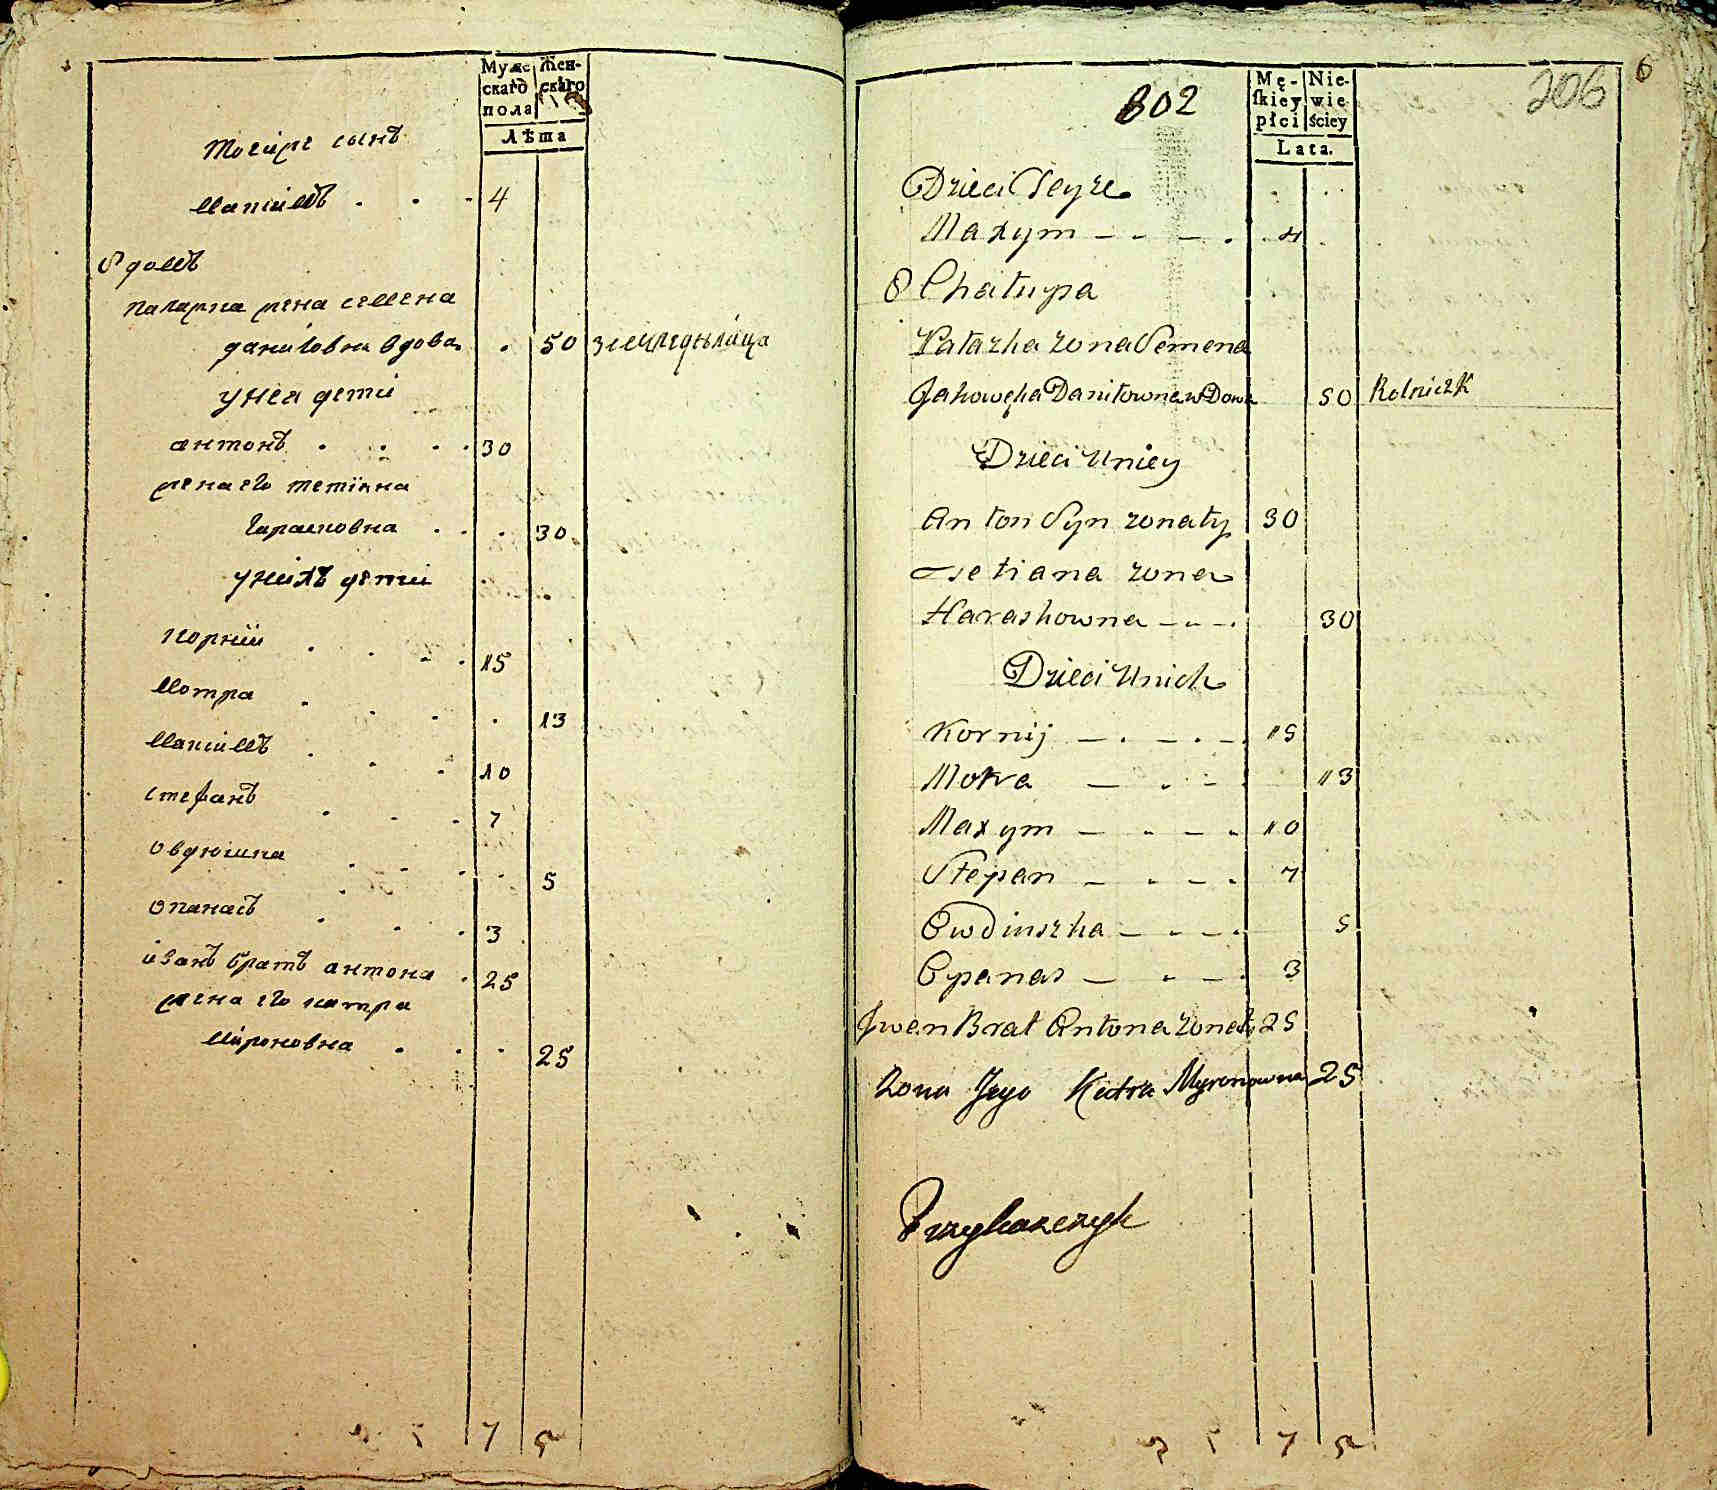 Муже
скаго
пола
Жен-
скаго
Лѣта
тоеиже сынъ
Максимъ . . . 4
8 домъ
палажка жена семена
даниловна вдова . 50 земледѣлица
у нея дети
антонъ . . . . 30
жена его тетіяна
Гарасковна . . . 30
у нихъ дети
корнïи . . . . 15
Мотра . . . . 13
Максимъ . . . 10
стефанъ . . . 7
овдюшка . . . . 5
опанасъ . . . 3
іванъ братъ антона . 25
жена его катра
Мироновна . . . 25
7 5
802
Mę-
skiey
płci
Nie-
wie
ściey
Lata.
206
6
Dzieci Teyże
Maxym - - - . 4
8 Chałupa
Pałazka zona Semena
Daniłowna wDowa 50 Rolniczk
Dzieci Uniey
Anton Syn zonaty 30
Tetiana zona
Haraskowna - - - . 30
Dzieci Unich
Kornij - . - . - 15
Motra - . - 13
Maxym - - - - 10
Stepan - - - . 7
Owdiuszka - - - . 5
Opanas - - - . 3
Jwan Brat Antona zonaty 25
Zona Jego Katra Myronowna 25
7 5